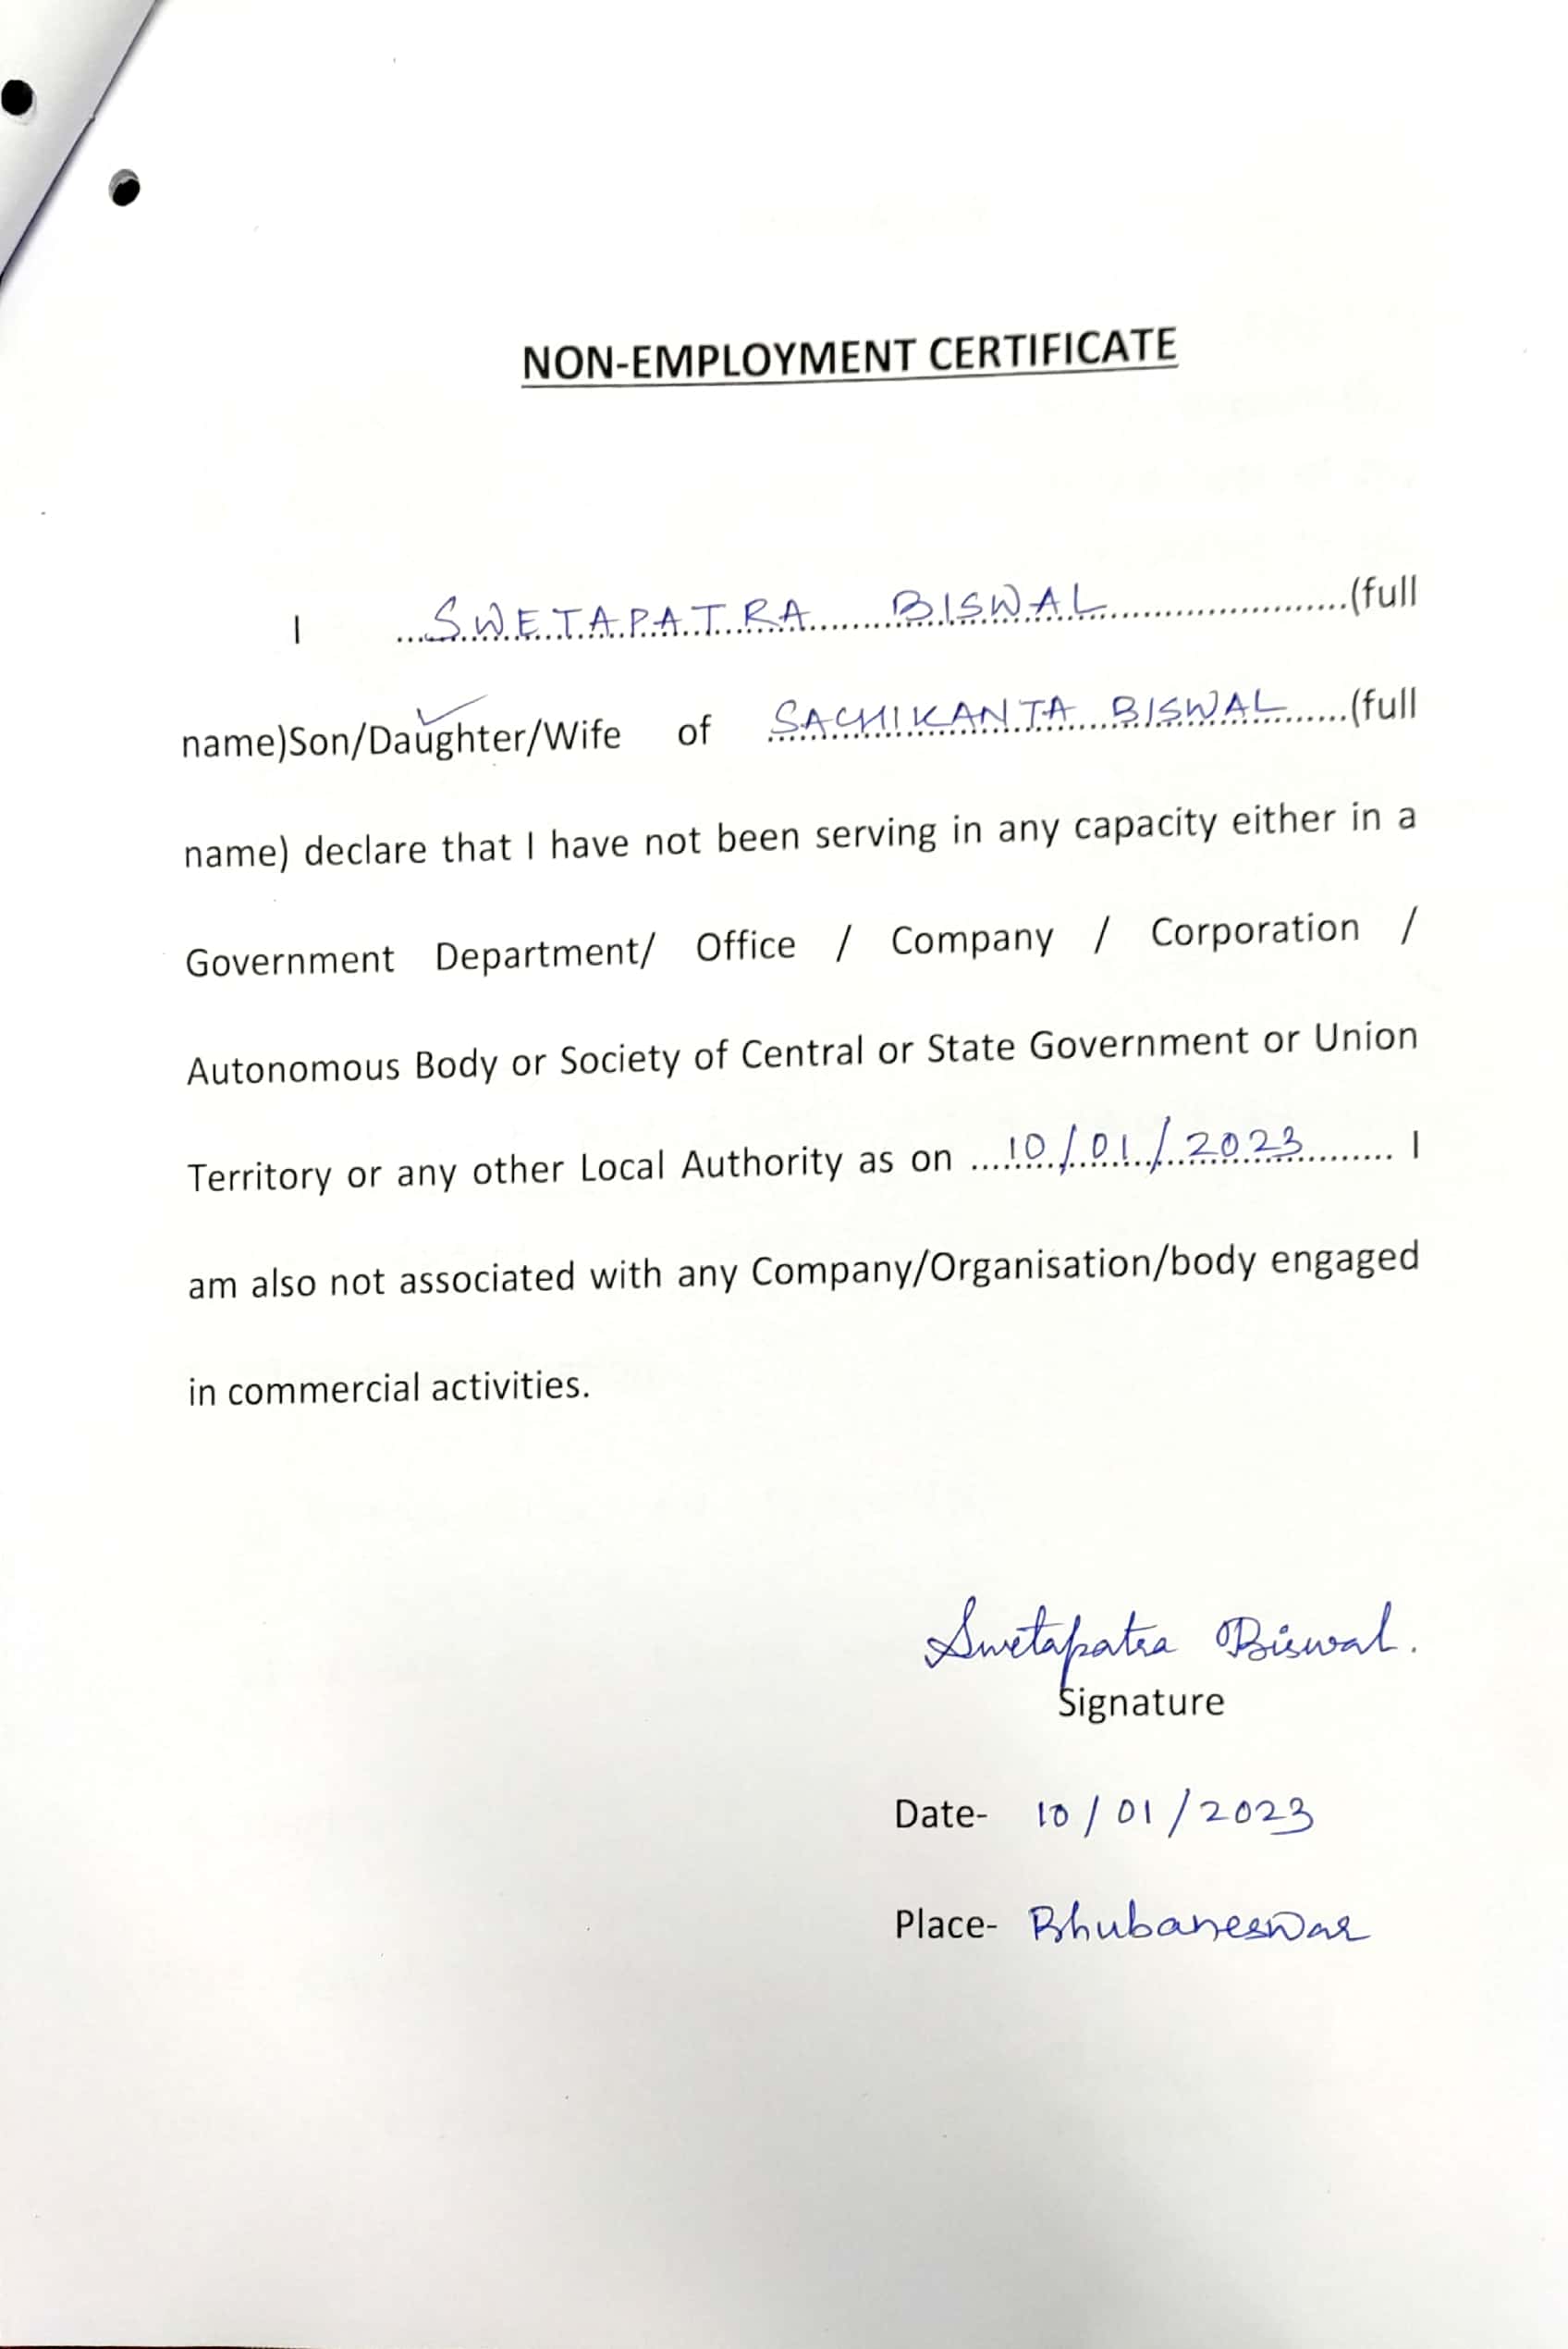 NON-EMPLOYMENT CERTIFICATE
I ...SWETAPATRA BISWAL...(full
name)Son/Daughter/Wife of SACHIKANTA BISWAL...(full
name) declare that I have not been serving in any capacity either in a
Government Department/ Office / Company / Corporation /
Autonomous Body or Society of Central or State Government or Union
Territory or any other Local Authority as on ...10/01/2023... I
am also not associated with any Company/Organisation/body engaged
in commercial activities.
Swetapatra Biswal.
Signature
Date- 10/01/2023
Place- Bhubaneswar